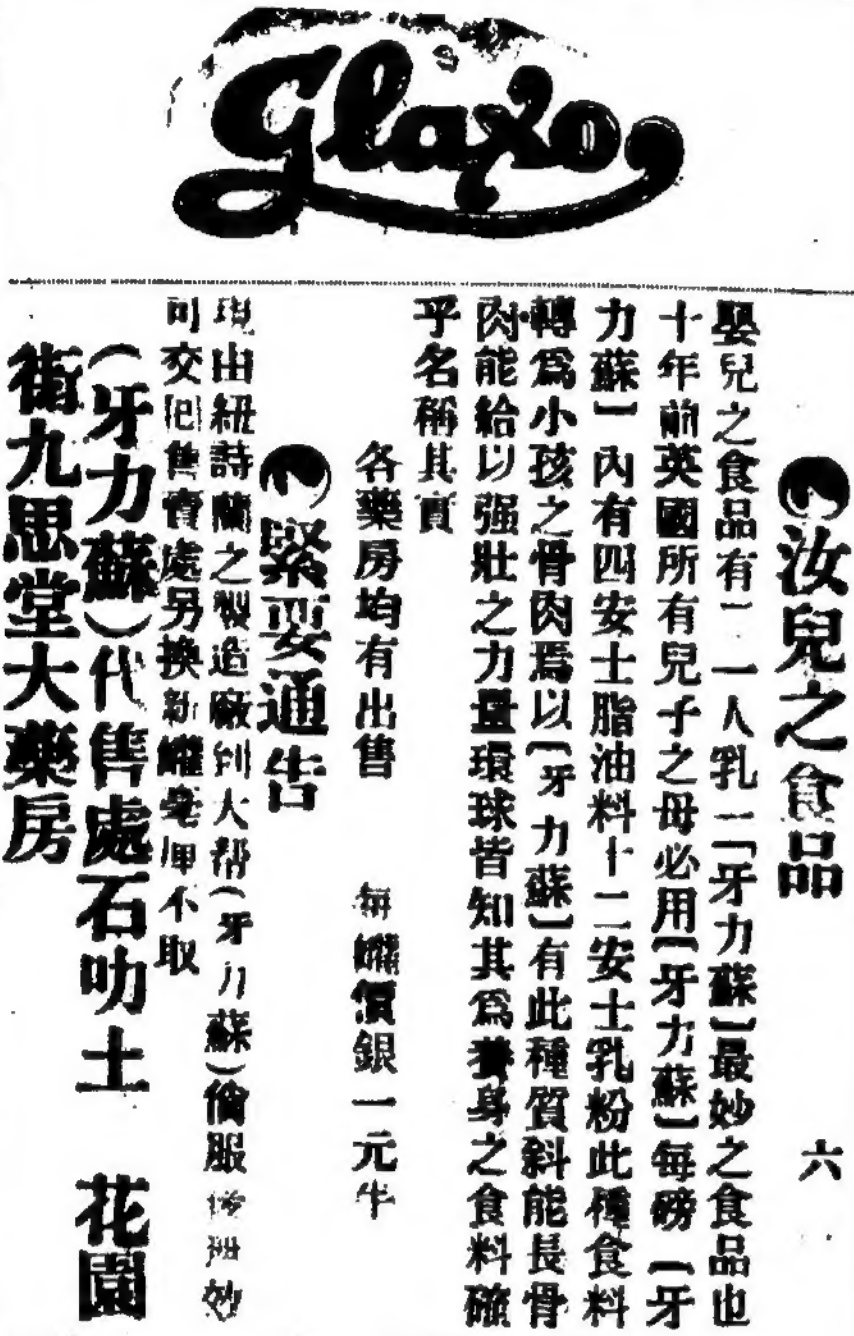 Glaxo
汝兒之食品 六
嬰兒之食品有二一人乳二「牙力蘇」最妙之食品也
十年前英國所有兒子之母必用「牙力蘇」每磅「牙
力蘇」內有四安士脂油料十二安士乳粉此種食料
轉爲小孩之骨肉焉以「牙力蘇」有此種質斜能長骨
肉能給以强壯之力量環球皆知其爲養身之食料確
乎名稱其實
各藥房均有出售 每罐價銀一元半
緊要通告
現由紐詩蘭之製造廠到大帮(牙力蘇)倘服
可交回售賣處另換新罐毫厘不取
(牙力蘇)代售處石叻土 花園
街九思堂大藥房